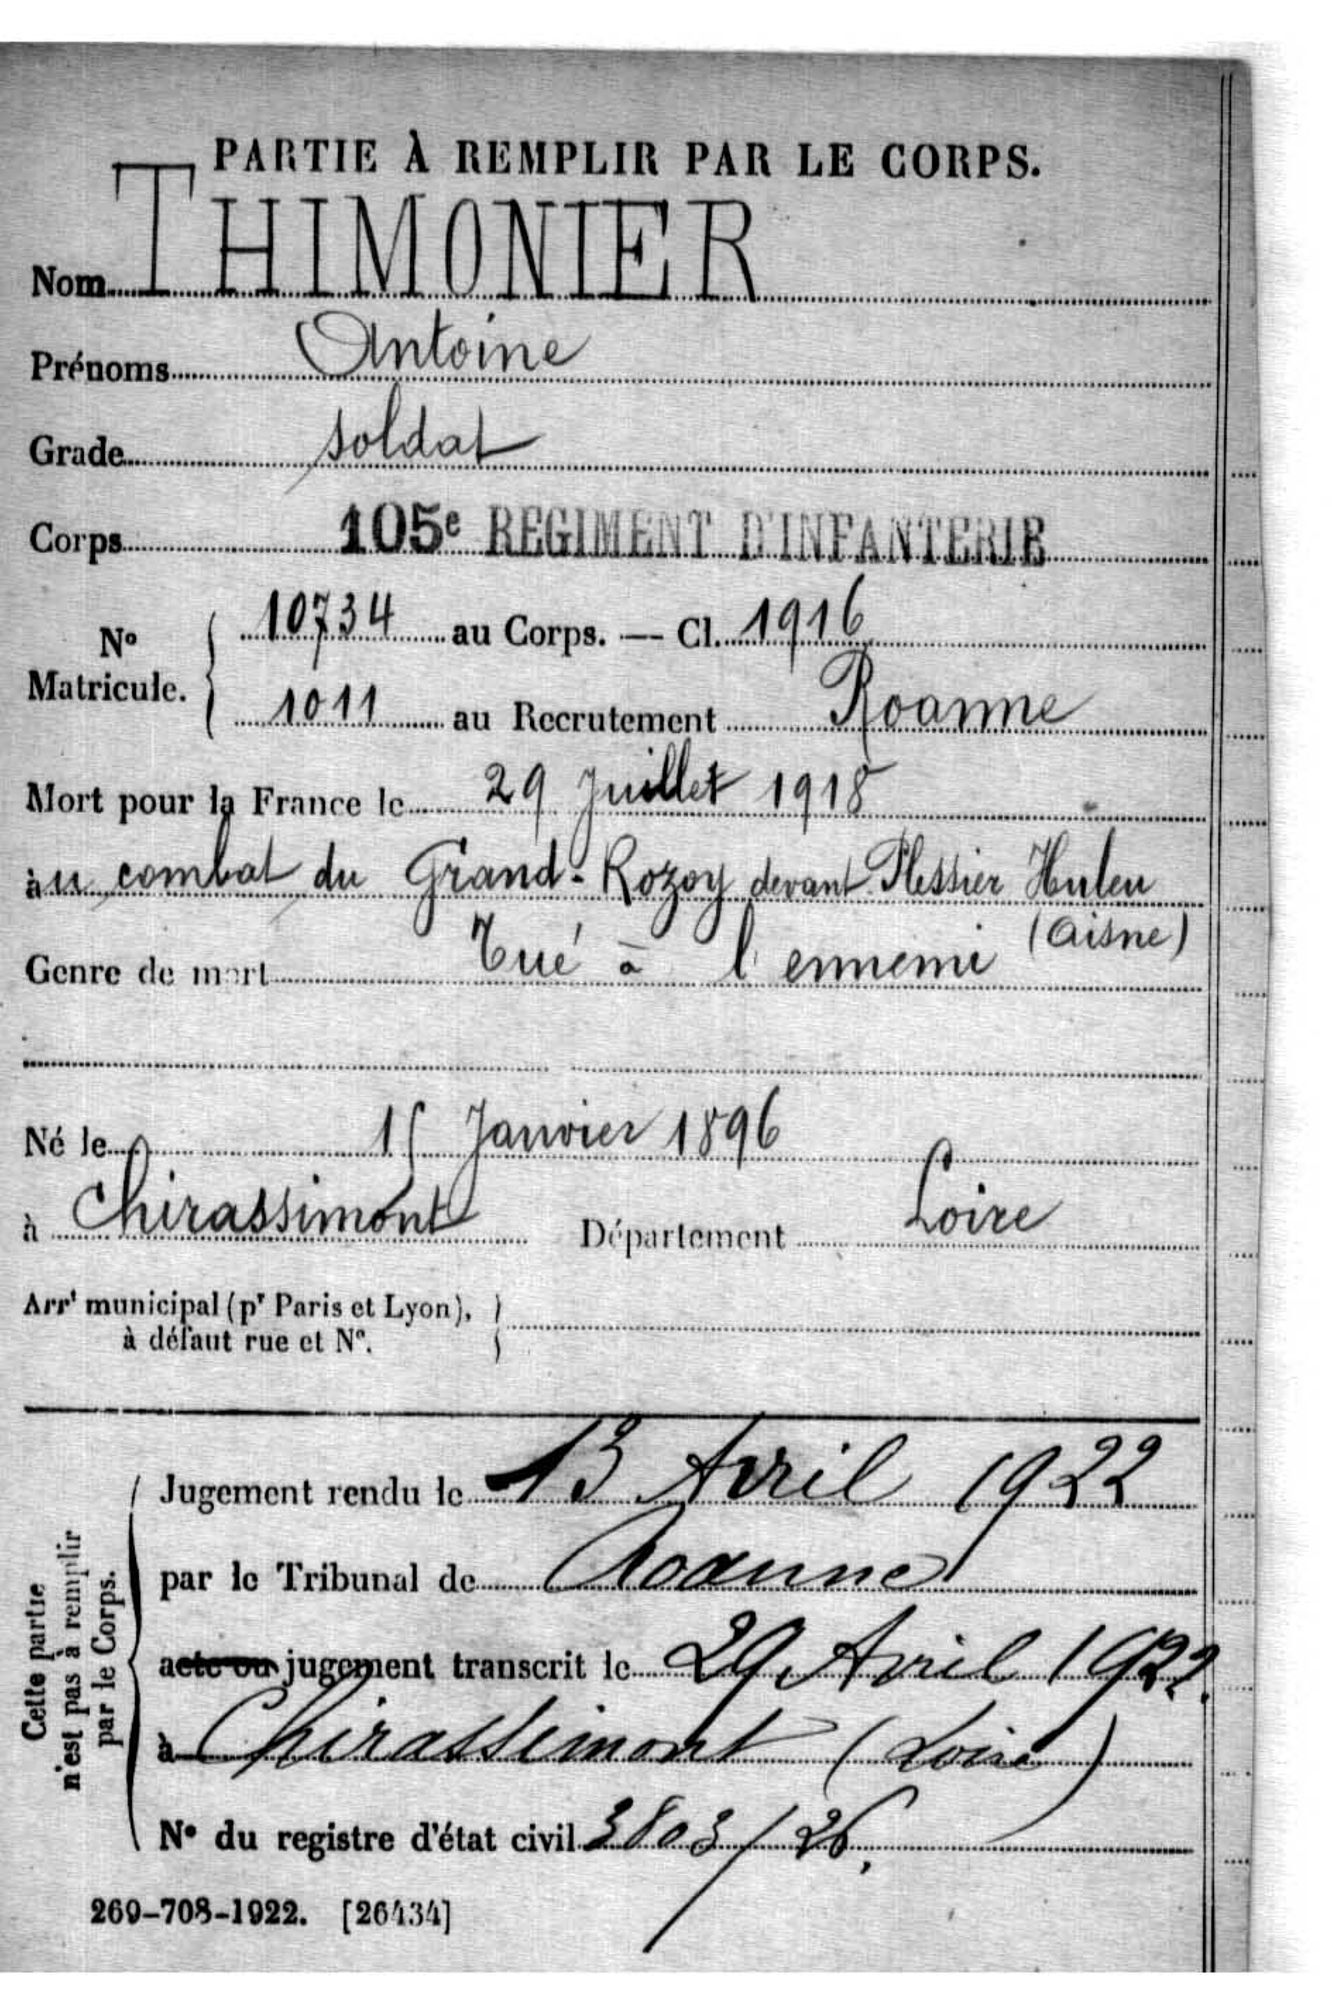 PARTIE À REMPLIR PAR LE CORPS.
Nom THIMONIER
Prénoms Antoine
Grade soldat
Corps 105e REGIMENT D'INFANTERIE
No Matricule. { 10734 au Corps. — Cl. 1916
1011 au Recrutement Roanne
Mort pour la France le 29 Juillet 1918
au combat du Grand-Rozoy devant Plessier Huleu
(Aisne)
Genre de mort Tué à l'ennemi
Né le 15 Janvier 1896
à Chirassimont Département Loire
Arrt municipal (pr Paris et Lyon),
à défaut rue et No.
Cette partie n'est pas à remplir par le Corps.
Jugement rendu le 13 Avril 1922
par le Tribunal de Roanne
acte ou jugement transcrit le 29 Avril 1922.
à Chirassimont (Loire)
No du registre d'état civil 3803/26.
269-708-1922. [26434]